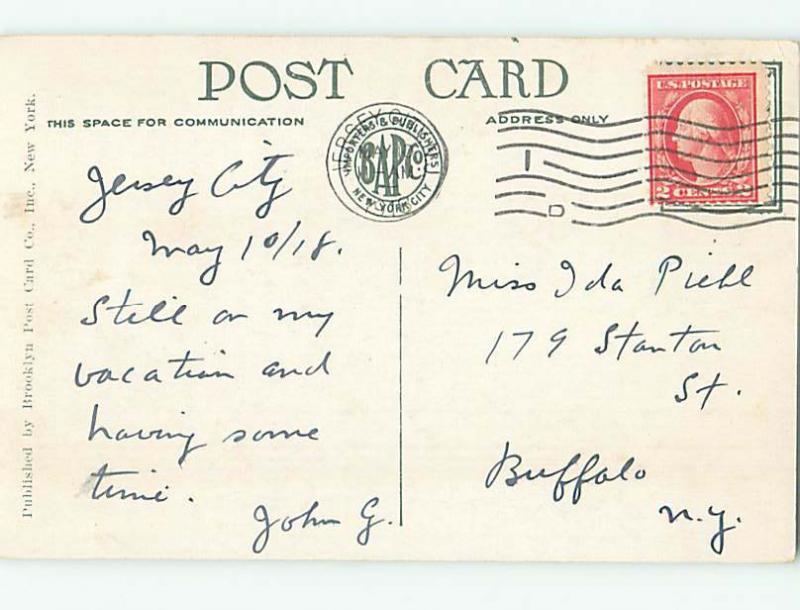 POST CARD
THIS SPACE FOR COMMUNICATION
ADDRESS ONLY
JERSEY C
IMPORTERS & PUBLISHERS
NEW YORK CITY
U.S. POSTAGE
2 CENTS 2
1
D
Jersey City
May 10/18.
Still on my
vacation and
having some
time.
John G.
Miss Ida Piehl
179 Stanton
St.
Buffalo
N.Y.
Published by Brooklyn Post Card Co., Inc., New York.